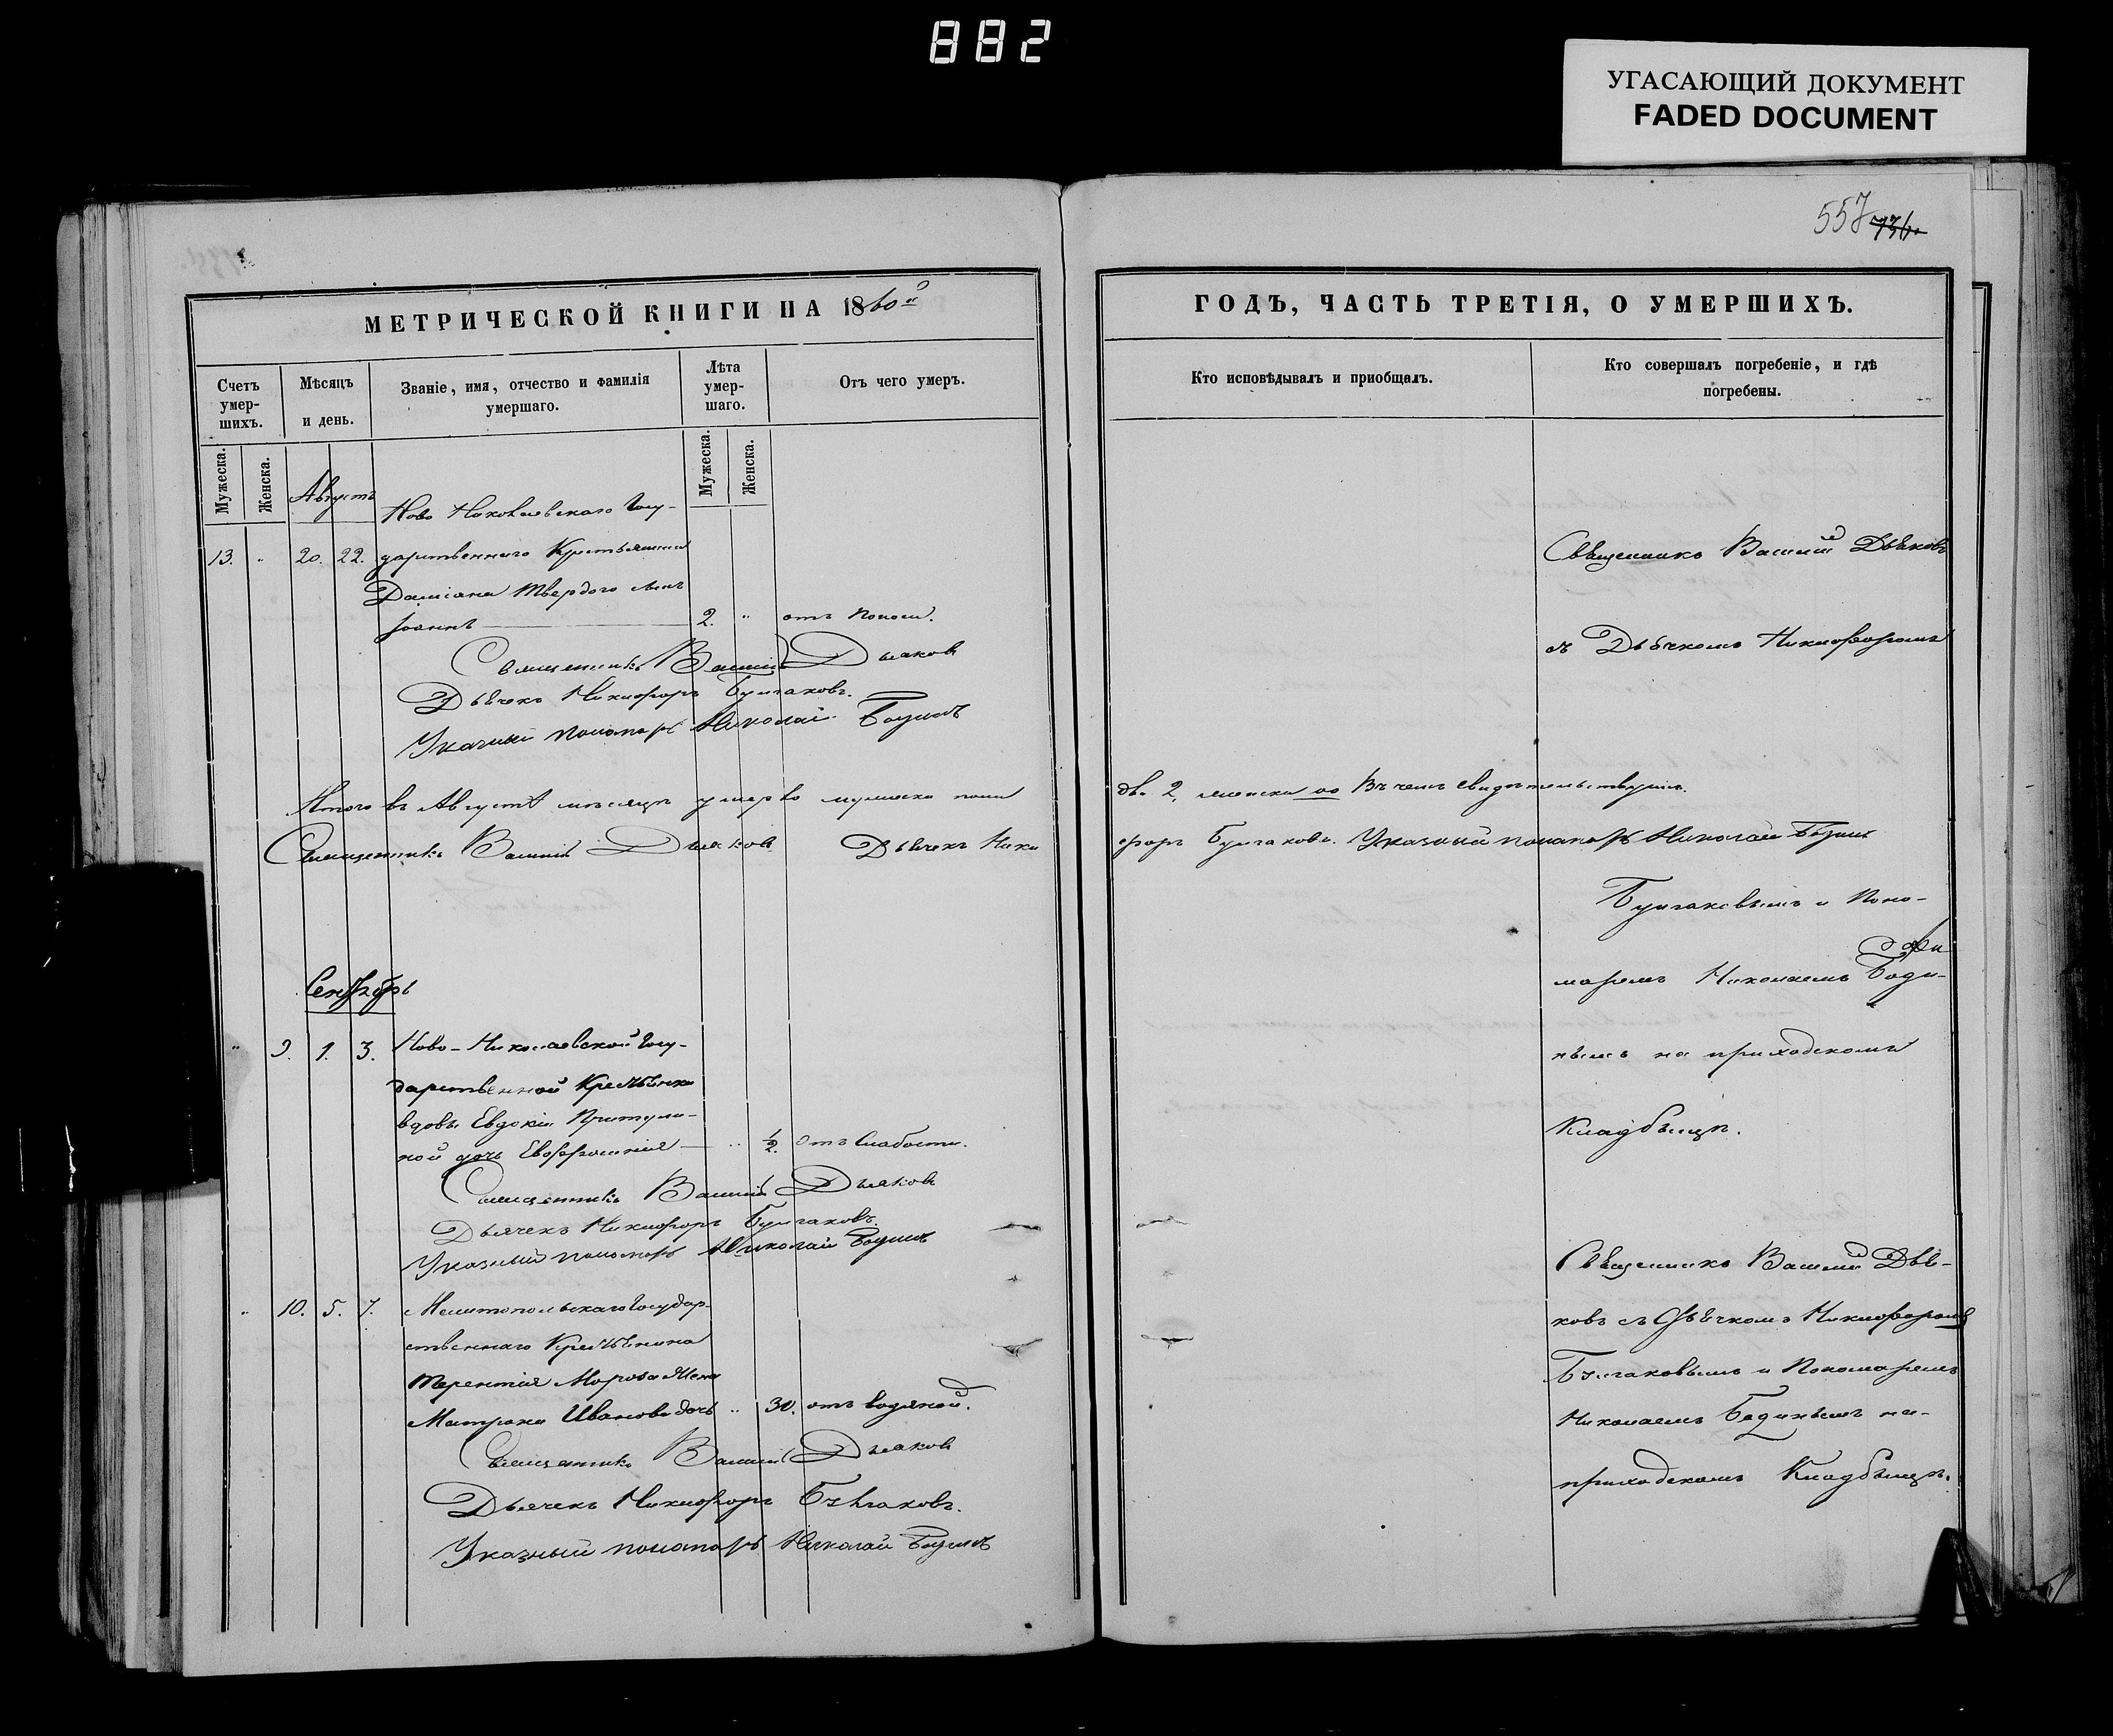 882
УГАСАЮЩИЙ ДОКУМЕНТ
FADED DOCUMENT
557 736.
МЕТРИЧЕСКОЙ КНИГИ НА 1860й
Счетъ умер-шихъ.
Мѣсяцъ и день.
Званіе, имя, отчество и фамилія умершаго.
Лѣта умер-шаго.
Отъ чего умеръ.
Мужеска.
Женска.
Мужеска.
Женска.
Августъ
Ново Николаевскаго Госу-
13. „ 20. 22. дарственнаго Крестьянина
Даміана Твердого сынъ
Іоаннъ 2. „ отъ поноса.
Священникъ Василій Дьяковъ
Дьячекъ Никифоръ Булгаковъ.
Указный пономарь Николай Бодинъ
Итого въ Августѣ мѣсяцѣ умерло мужеска пола
Священникъ Василій Дьяковъ Дьячекъ Ники
Сентябрь
„ 9. 1. 3. Ново-Николаевской Госу-
дарственной Крестьянки
вдовы Евдокіи Притули-
ной дочь Евфросинія „ 1/2. Отъ слабости.
Священникъ Василій Дьяковъ
Дьячекъ Никифоръ Булгаковъ.
Указный пономарь Николай Бодинъ
„ 10. 5. 7. Мелитопольскаго Государ-
ственнаго Крестьянина
Терентія Мороза жена
Матрона Иванова дочь „ 30. отъ водяной.
Священникъ Василій Дьяковъ
Дьячекъ Никифоръ Булгаковъ.
Указный пономарь Николай Бодинъ
ГОДЪ, ЧАСТЬ ТРЕТІЯ, О УМЕРШИХЪ.
Кто исповѣдывалъ и пріобщалъ.
Кто совершалъ погребеніе, и гдѣ
погребены.
Священникъ Василій Дьяковъ
съ Дьячкомъ Никифоромъ
два 2, женска 00 Въ чемъ свидѣтельствуемъ.
форъ Булгаковъ. Указный пономарь Николай Бодинъ
Булгаковымъ и Поно-
маремъ Николаемъ Боди-
нымъ на приходскомъ
Кладбищѣ.
Священникъ Василій Дья-
ковъ съ Дьячкомъ Никифоромъ
Булгаковымъ и Пономаремъ
Николаемъ Бодинымъ на-
приходскомъ Кладбищѣ.